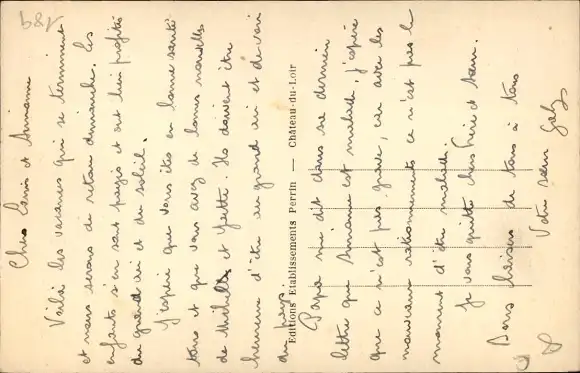 Chers Louis et Simonne
Voilà les vacances qui se terminent
et nous serons de retour dimanche. Les
enfants s'en sont payés et ont bien profités
du grand air et du soleil.
J'espère que vous êtes en bonne santé
tous et que vous avez de bonnes nouvelles
de Michelle et Yvette. Ils doivent être
heureux d'être au grand air et de voir
du pays.
Papa me dit dans sa dernière
lettre que Simonne est malade j'espère
que ce n'est pas grave, car avec les
nouveaux rationnements ce n'est pas le
moment d'être malade.
Je vous quitte chers frère et sœur.
Bons baisers de tous à tous
Votre sœur Gaby
Editions Etablissements Perrin — Château-du-Loir